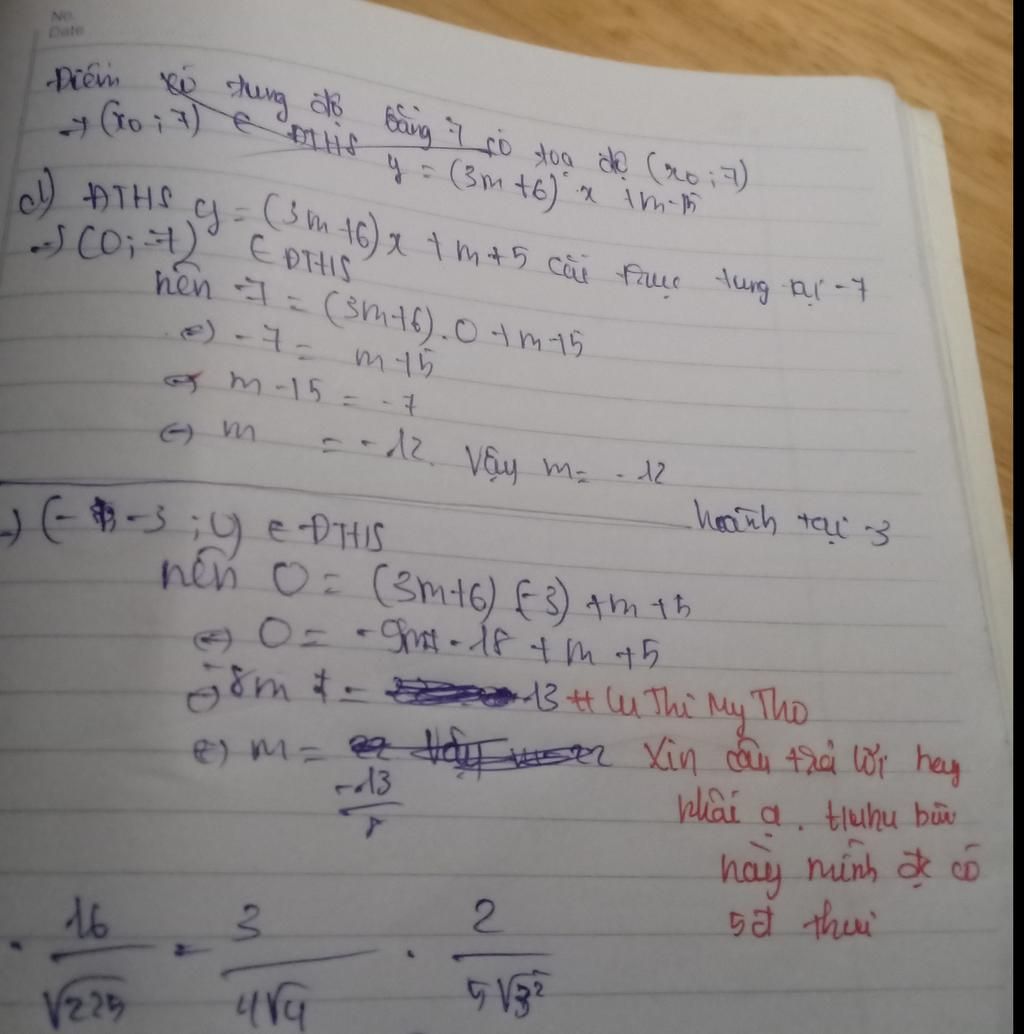 No.
Date
Điểm có tung độ bằng 7 có toạ độ (x0; 7)
→ (x0; 7) ∈ ĐTHS y = (3m+6) x + m+5
d) ĐTHS y = (3m+6)x + m+5 cắt trục tung tại -7
→ (0; -7) ∈ ĐTHS
nên -7 = (3m+6).0 + m+5
⇔ -7 = m+5
⇔ m-15 = -7
⇔ m = -12. Vậy m = -12
hoành tại -3
→ (-3; y) ∈ ĐTHS
nên 0 = (3m+6)(-3) + m+5
⇔ 0 = -9m - 18 + m + 5
⇔ -8m = 13
⇔ m = -13/8
Lu Thi My Tho
Xin câu trả lời hay
nhất ạ. 
này mình đk có
5đ thui
16/√225 = 3/4√4 . 2/5√3²